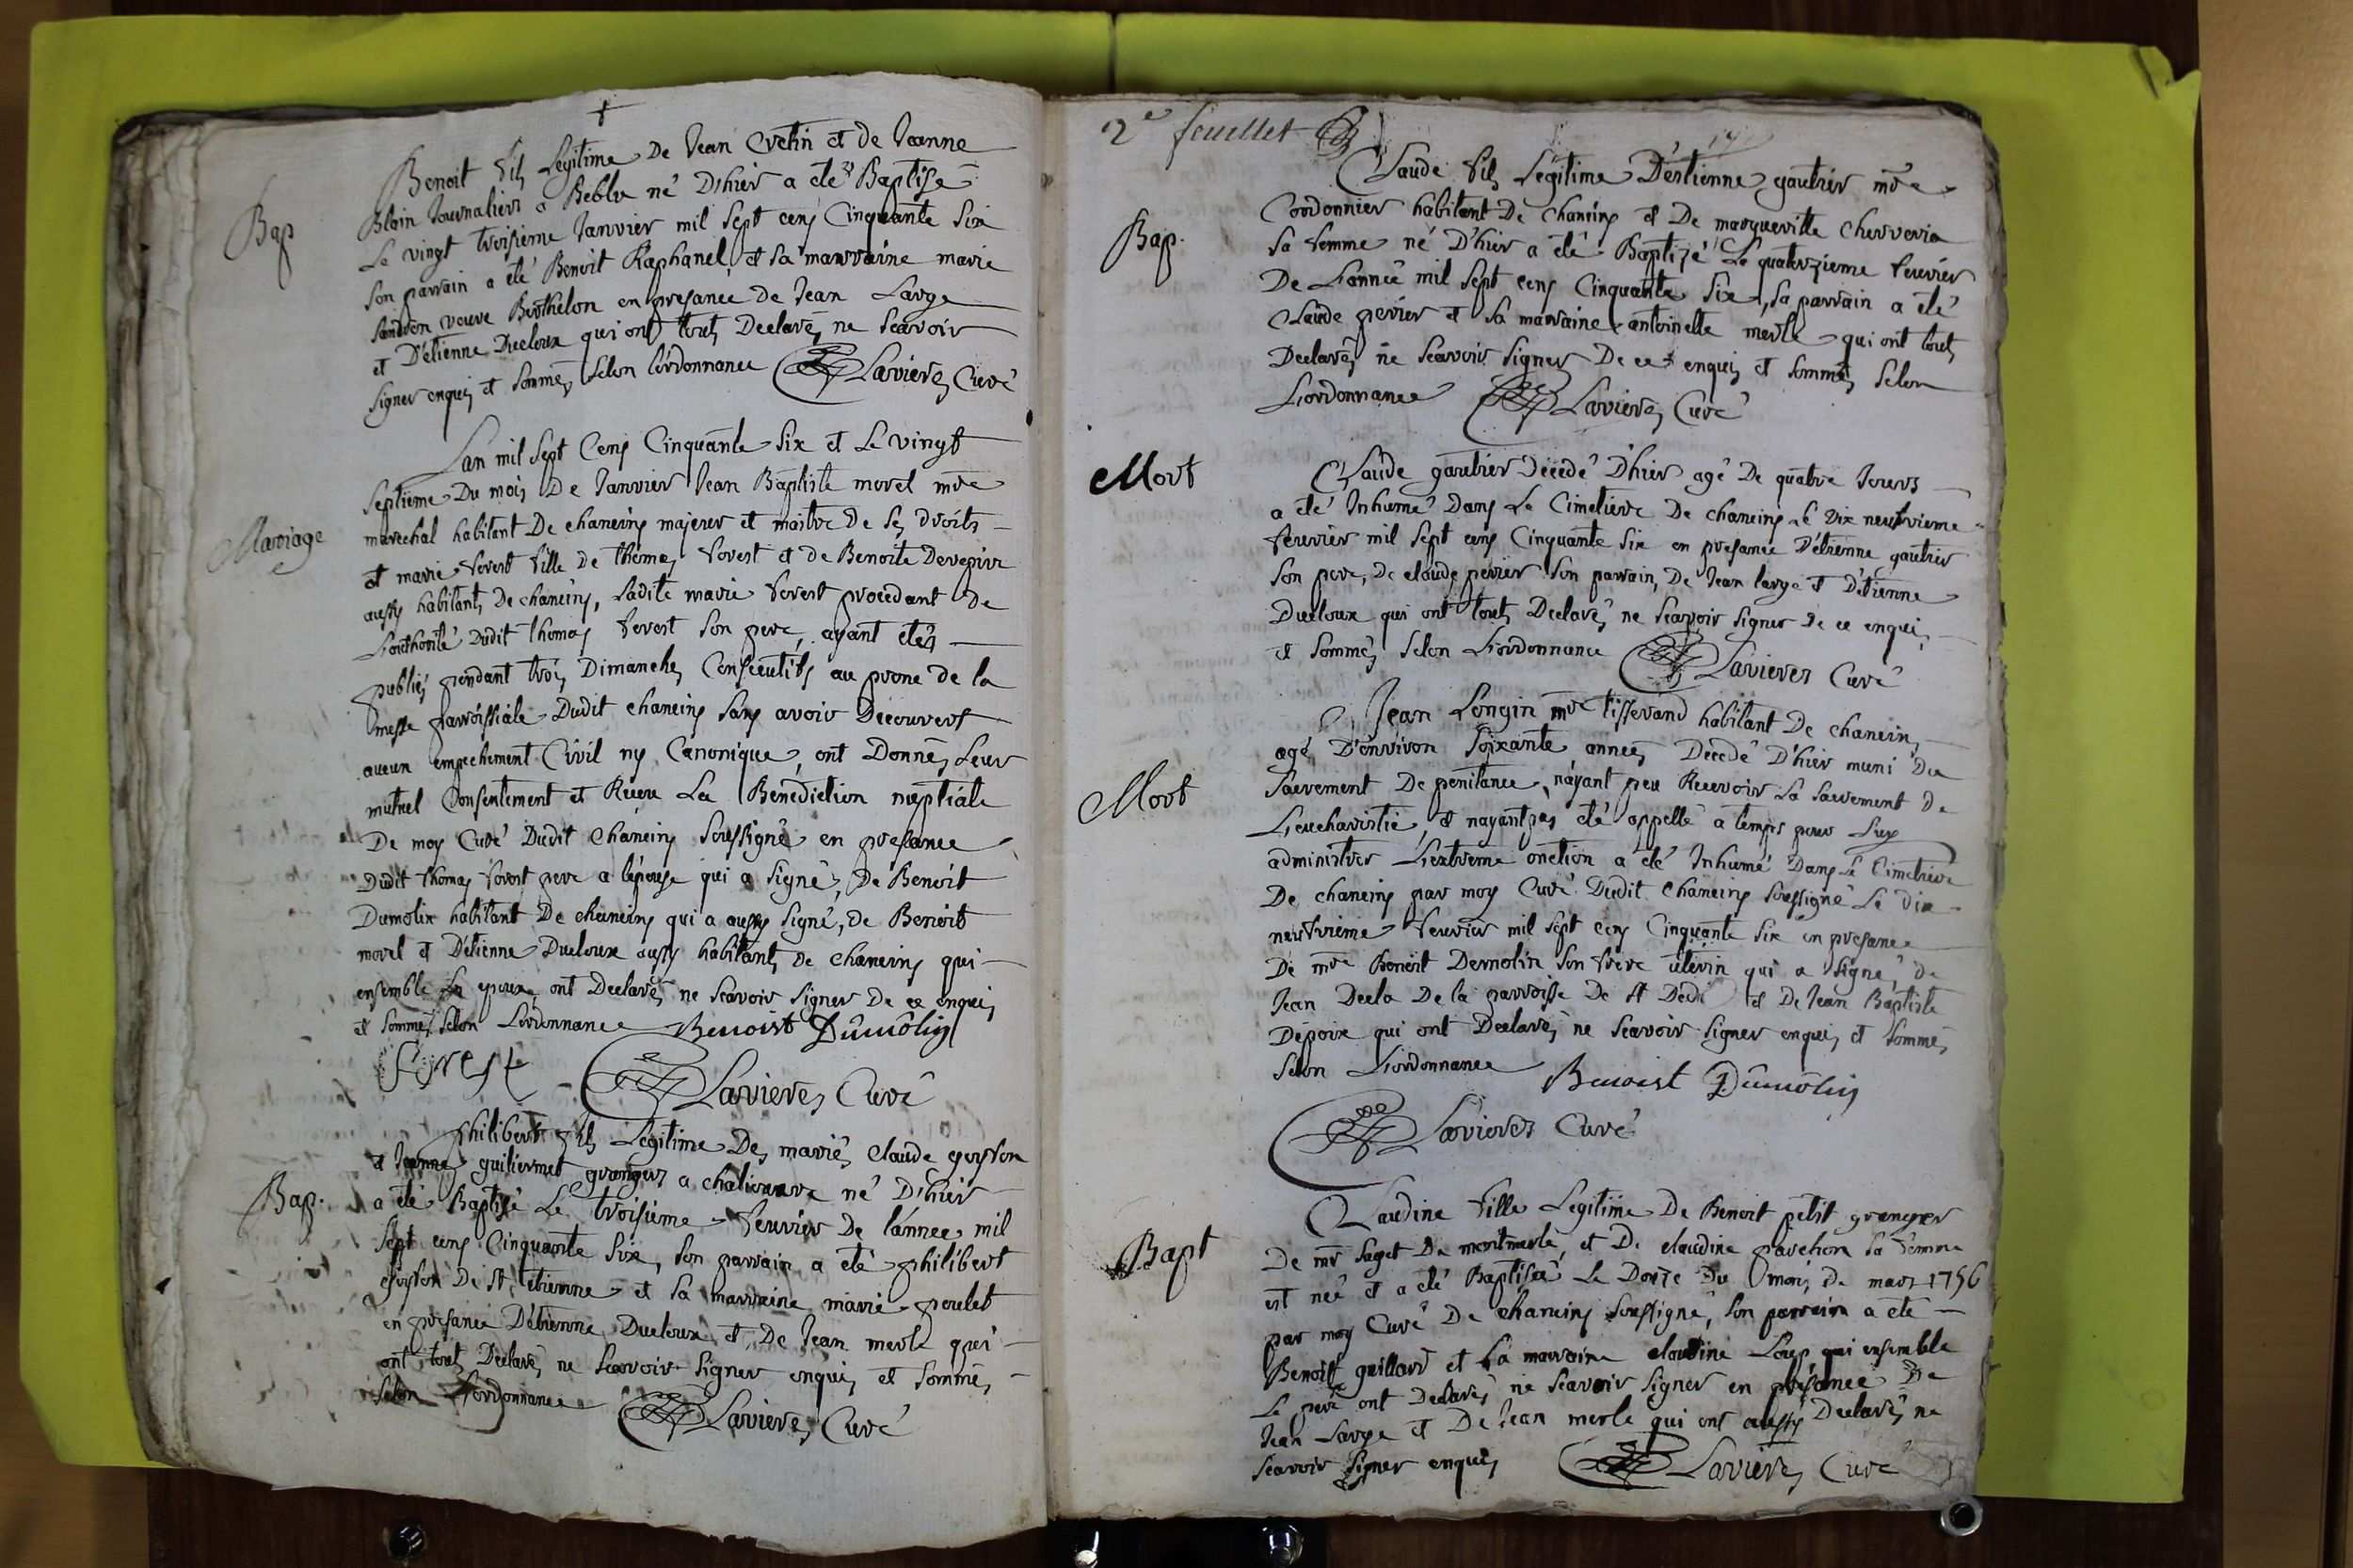 Bap
Benoit fils Legitime De Jean Cretin et de Jeanne
Blain Journaliers a Beblu né D'hier a eté Baptisé
Le vingt troisieme Janvier mil sept cens Cinquante six
son parrain a été Benoit Raphanel, et sa marraine marie
veuve Berthelon en presance de Jean Large
et D'étienne Ducloux qui ont touts Declarés ne scavoir
signer enquis et sommés selon l'ordonnance Lavieres Curé
Mariage
Lan mil sept Cens Cinquante six et Le vingt
septieme Du mois De Janvier Jean Baptiste morel mre
marechal habitant De chaneins majeur et maitre De ses droits
et marie forest fille De thomas forest et de Benoite Deverpire
aussy habitants De chaneins, ladite marie forest procedant de
L'authorité Dudit thomas forest son pere, ayant étés
publiés pendant trois Dimanches Consecutifs au prone de la
messe parroissiale Dudit chaneins sans avoir Decouvert
aucun empechement Civil ny Canonique, ont Donnés Leur
mutuel Consentement et Recu La Benediction nuptiale
De moy Curé Dudit chaneins soussigné en presance
Dudit thomas forest pere a l'epouse qui a signé, De Benoit
Dumolin habitant De chaneins qui a aussy signé, de Benoit
morel et D'étienne Ducloux aussy habitants de chaneins qui
ensemble Les epoux, ont Declarés ne scavoir signer De ce enquis
et sommés selon L'ordonnance Benoist Dumolin
forest Lavieres Curé
Bap.
philibert fils Legitime Des mariés claude goyffon
et Jeanne guiliermet grangers a chaliouvre né D'hier
a eté Baptisé Le troisieme feuvrier De l'année mil
sept cens Cinquante six, son parrain a été philibert
goyffon De St etienne et sa marraine marie poulet
en presance D'étienne Ducloux et De Jean merle qui
ont touts Declarés ne scavoir signer enquis et sommés
selon L'ordonnance Lavieres Curé
2e feuillet
Bap.
Claude fils Legitime D'estienne gautier mre
Cordonnier habitant De chaneins et De margueritte cherveria
sa femme né D'hier a été Baptizé Le quatorzieme feuvrier
De L'année mil sept cens Cinquante six, sa parrain a été
claude perier et sa marraine antoinette merle qui ont touts
Declarés ne scavoir signer De ce enquis et sommés selon
L'ordonnance Lavieres Curé
Mort
Claude gautier Décedé D'hier agé De quatre Jours
a été Inhumé Dans Le Cimetiere De chaneins Le Dix neufvieme
feuvrier mil sept cens Cinquante six en presance D'étienne gautier
son pere, De claude perier son parrain, De Jean large et D'étienne
Ducloux qui ont touts Declarés ne scavoir signer De ce enquis
et sommés selon L'ordonnance Lavieres Curé
Mort
Jean Longin mre tisserand habitant De chaneins
agé D'environ soixante années Décedé D'hier muni Du
sacrement De penitance, n'ayant peu Recevoir La sacrement de
L'eucharistie, et nayant pas été appellé a temps pour Luy
administrer L'extreme onction a été Inhumé Dans Le Cimetiere
De chaneins par moy Curé Dudit chaneins soussigné Le dix
neufvieme feuvrier mil sept cens Cinquante six en presance
De mre Benoit Demolin son frere uterin qui a signé, de
Jean Decla De la parroisse De St Dedi et De Jean Baptiste
Depoix qui ont Declarés ne scavoir signer enquis et sommés
selon L'ordonnance Benoist Dumolin
Lavieres Curé
Bapt
Claudine fille Legitime De Benoit petit granger
De mr saget De montmerle, et De claudine parchon sa femme
est née et a été Baptisée Le Douze Du mois De mars 1756
par moy Curé De chaneins soussigné, son parrain a été
Benoit guillard et La marraine claudine Loup qui ensemble
Le pere ont Declarés ne scavoir signer en presance De
Jean Large et De Jean merle qui ont aussy Declarés ne
scavoir signer enquis Lavieres Curé